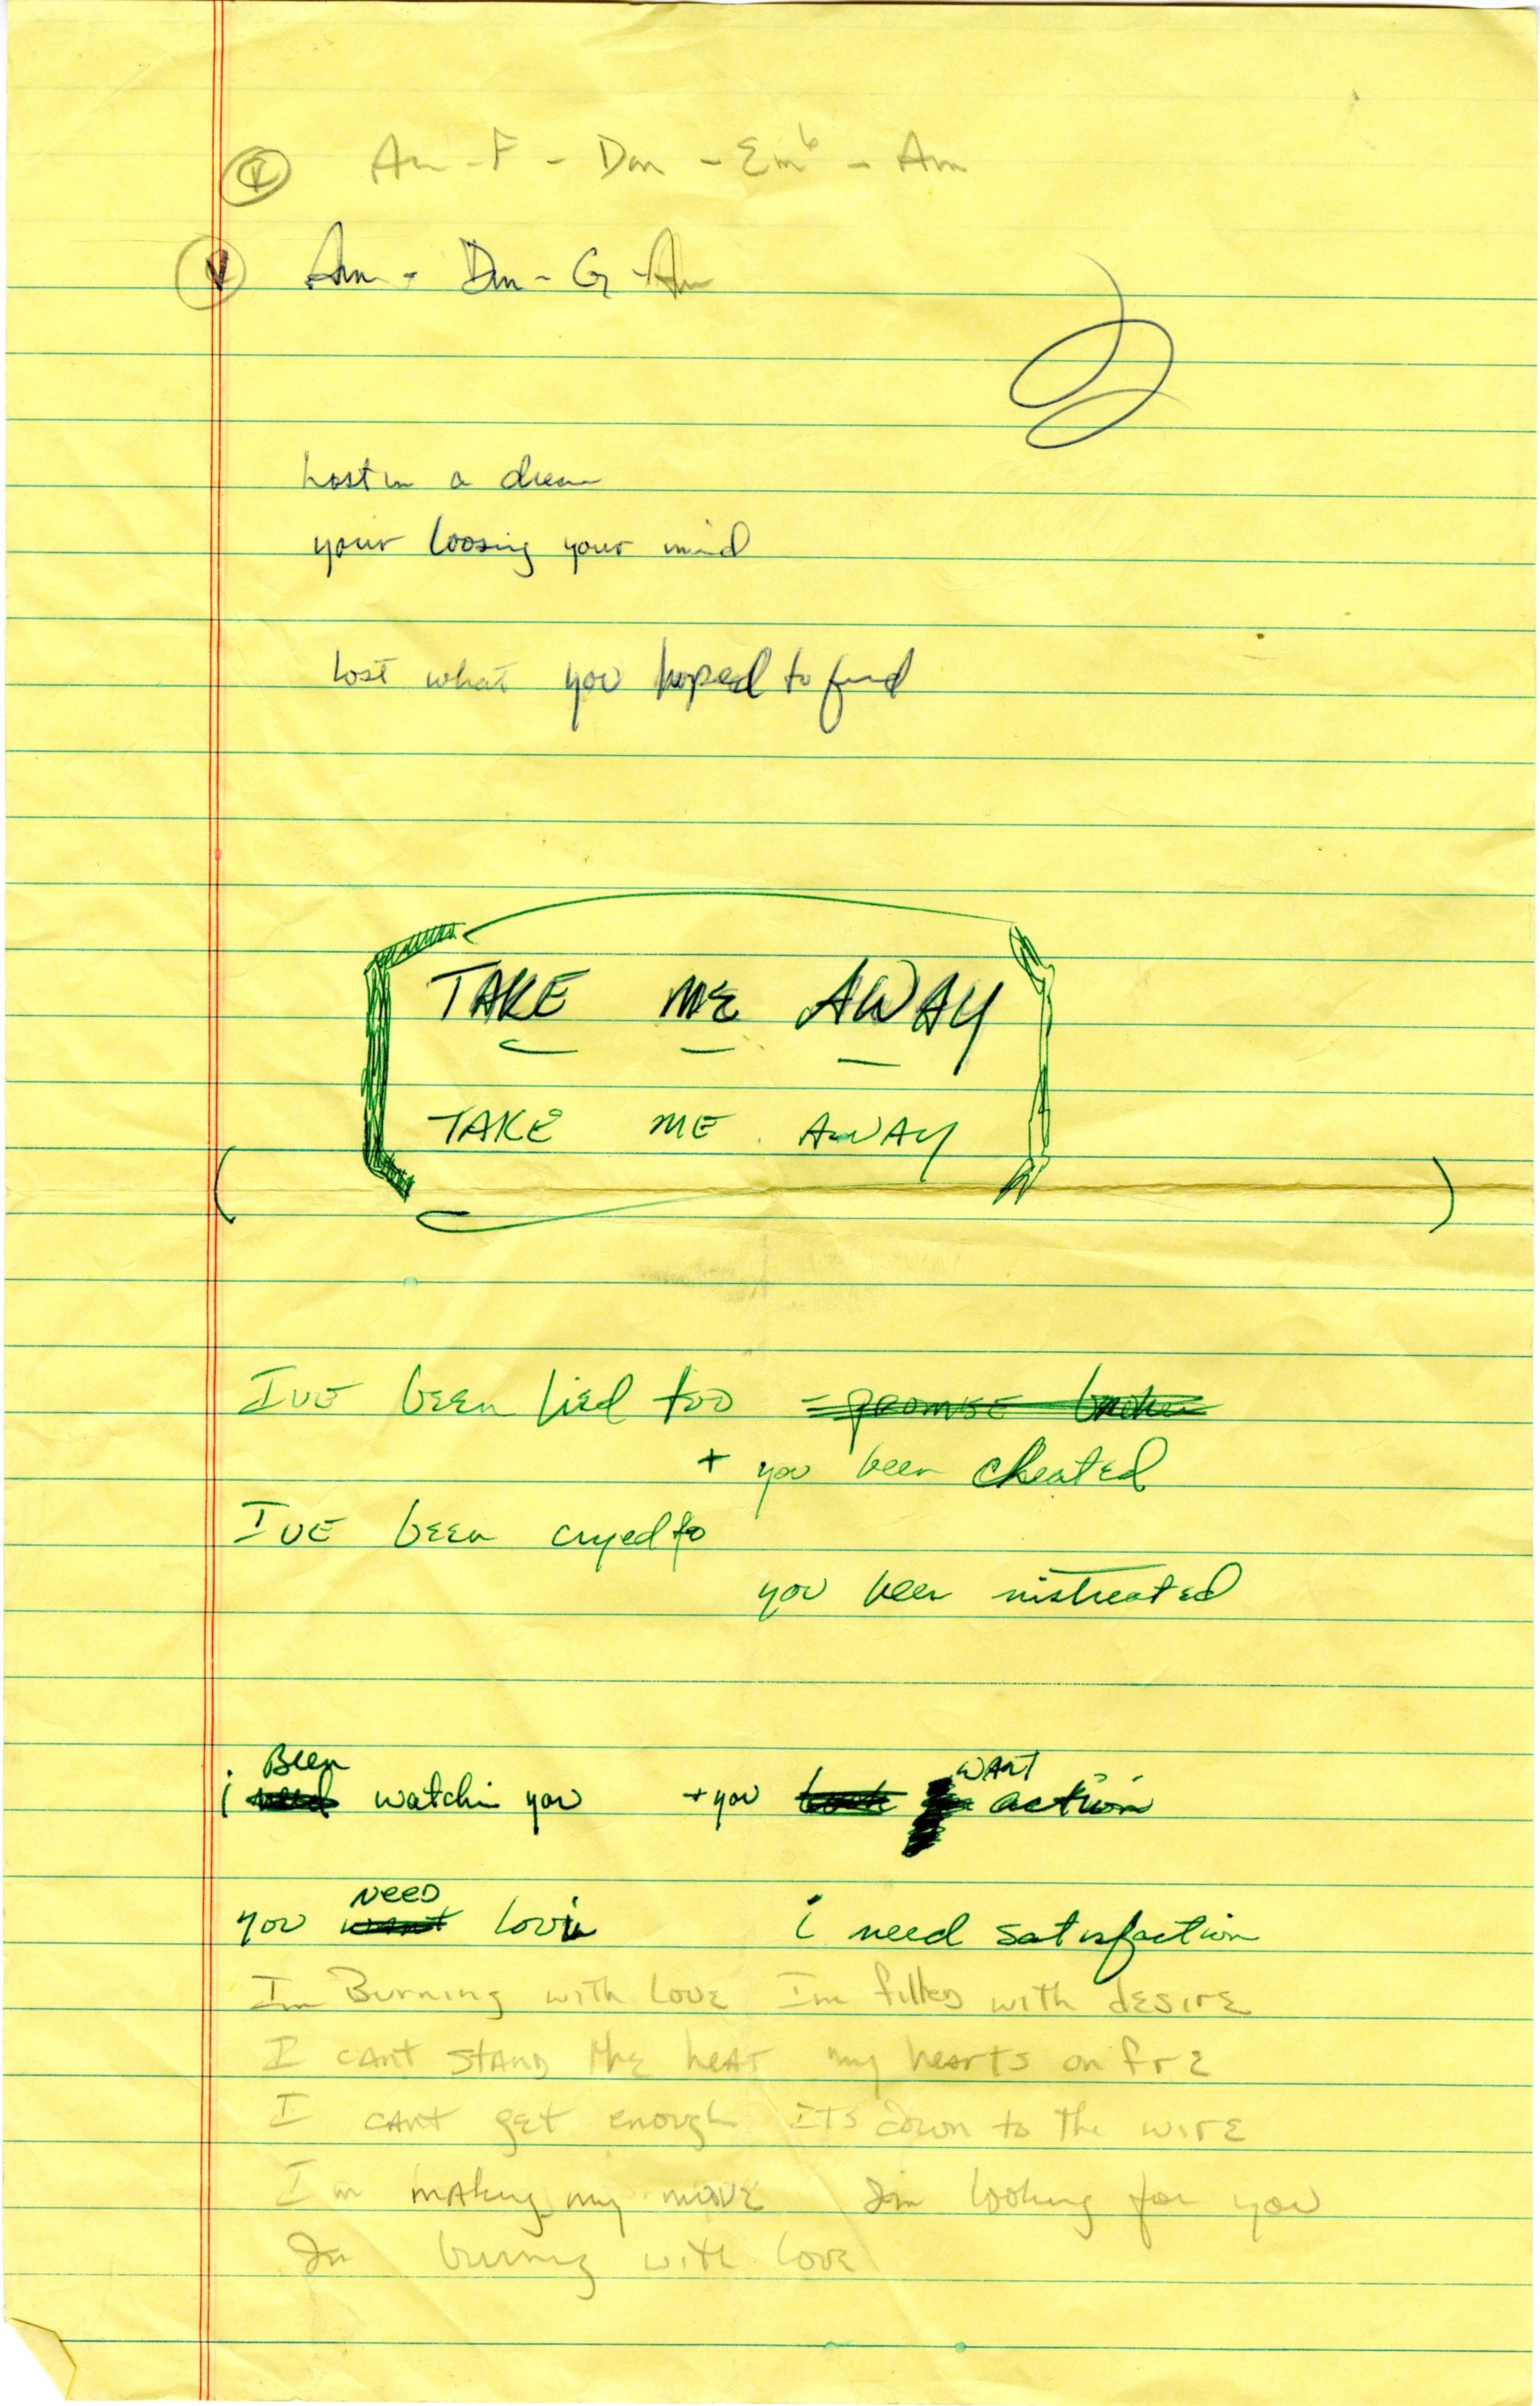 Am - F - Dm - Em6 - Am
V Am - Dm - G - Am
Lost in a dream
your loosing your mind
lost what you hoped to find
TAKE ME AWAY
TAKE ME AWAY
( )
IVE been lied too = PROMISE broken
+ you been cheated
IVE been cryed to
you been mistreated
Been WANT
i need watchin you + you look action
NEED
you want lovin i need satisfaction
Im Burning with LOVE Im filled with dESIrE
I cAnt STAND the heAT my heArts on frE
I cAnt get enough ITS down to The wirE
Im mAking my movE Im looking for you
Im burning with love